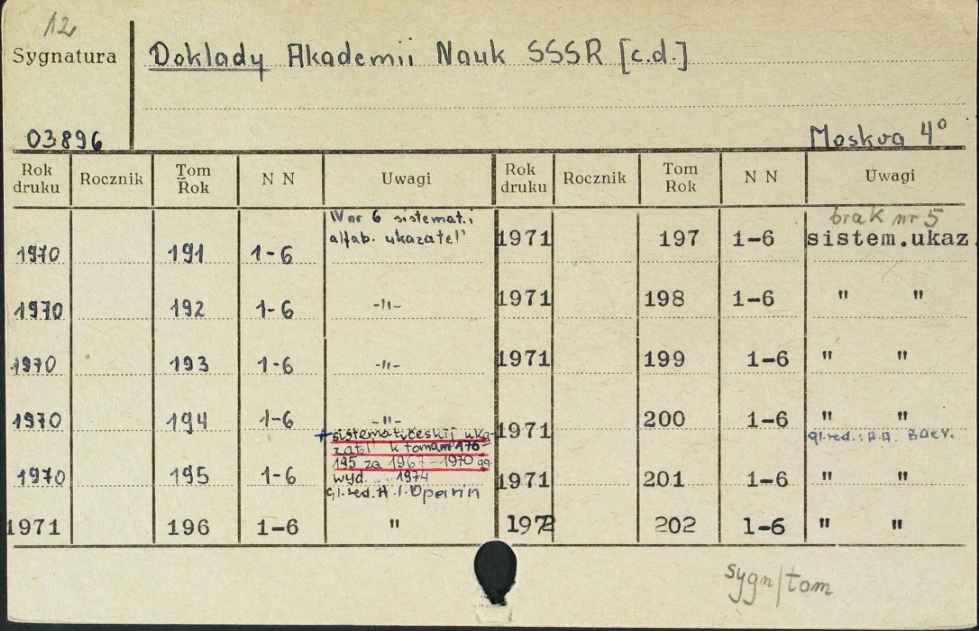 12
Sygnatura
Doklady Akademii Nauk SSSR [c.d.]
03896
Moskva 4°
Rok druku Rocznik Tom Rok N N Uwagi Rok druku Rocznik Tom Rok N N Uwagi
1970 191 1-6 W nr 6 sistemat.i
alfab. ukazatel'
1970 192 1-6 -"-
1970 193 1-6 -"-
1970 194 1-6 -"-
+ sistematičeskij uka-
zatel' k tomam 170-
195 za 1967-1970 gg
wyd. 1974
gl.red. A.I. Oparin
1970 195 1-6
1971 196 1-6 "
brak nr 5
1971 197 1-6 sistem.ukaz
1971 198 1-6 " "
1971 199 1-6 " "
1971 200 1-6 " "
gl.red.:
1971 201 1-6 " "
1972 202 1-6 " "
sygn/tom